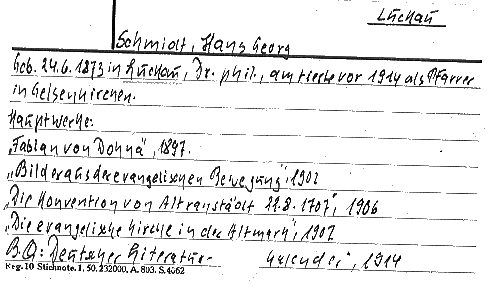 Luckau
Schmidt, Hans Georg
Geb. 24.6.1873 in Luckau, Dr. phil., amtierte vor 1914 als Pfarrer
in Gelsenkirchen.
Hauptwerke:
„Fabian von Dohna", 1897.
„Bilder aus der evangelischen Bewegung", 1902
„Die Konvention von Altranstädt 22.8.1707", 1906
„Die evangelische Kirche in der Altmark", 1907
B.Q.: Deutscher Literatur-Kalender", 1914
Reg. 10 Stichnote. 1, 50, 232000, A. 803. S. 4062